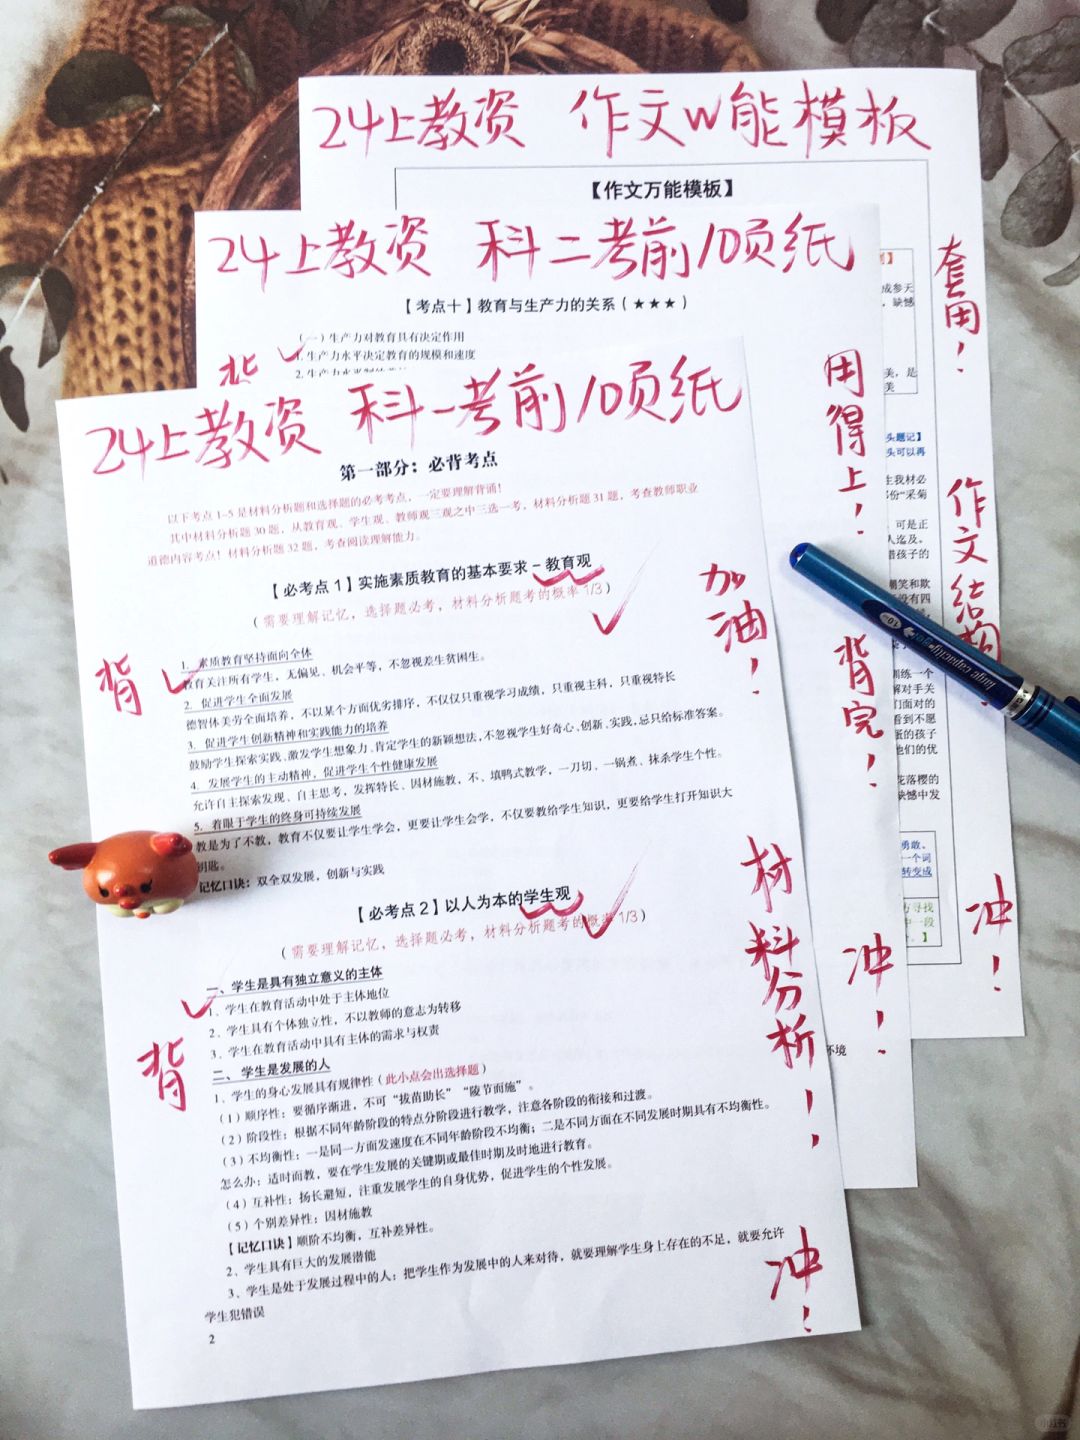 24上教资 作文w能模板
【作文万能模板】
套用！
作文结构！
冲！
24上教资 科二考前10页纸
【考点十】教育与生产力的关系（★★★）
（一）生产力对教育具有决定作用
1. 生产力水平决定教育的规模和速度
背
用得上！
背完！
冲！
24上教资 科一考前10页纸
第一部分：必背考点
以下考点 1-5 是材料分析题和选择题的必考考点，一定要理解背诵！
其中材料分析题 30 题，从教育观、学生观、教师观三观之中三选一考，材料分析题 31 题，考查教师职业
道德内容考点！材料分析题 32 题，考查阅读理解能力。
【必考点 1】实施素质教育的基本要求－教育观
（需要理解记忆，选择题必考，材料分析题考的概率 1/3）
背
1. 素质教育坚持面向全体
教育关注所有学生，无偏见、机会平等，不忽视差生贫困生。
2. 促进学生全面发展
德智体美劳全面培养，不以某个方面优劣排序，不仅仅只重视学习成绩，只重视主科，只重视特长
3. 促进学生创新精神和实践能力的培养
鼓励学生探索实践、激发学生想象力、肯定学生的新颖想法，不忽视学生好奇心、创新、实践，忌只给标准答案。
4. 发展学生的主动精神，促进学生个性健康发展
允许自主探索发现、自主思考，发挥特长、因材施教，不、填鸭式教学，一刀切、一锅煮、抹杀学生个性。
5. 着眼于学生的终身可持续发展
教是为了不教，教育不仅要让学生学会，更要让学生会学，不仅要教给学生知识，更要给学生打开知识大
钥匙。
记忆口诀：双全双发展，创新与实践
【必考点 2】以人为本的学生观
（需要理解记忆，选择题必考，材料分析题考的概率 1/3）
一、学生是具有独立意义的主体
1、学生在教育活动中处于主体地位
2、学生具有个体独立性，不以教师的意志为转移
3、学生在教育活动中具有主体的需求与权责
背
二、 学生是发展的人
1、学生的身心发展具有规律性（此小点会出选择题）
（1）顺序性：要循序渐进，不可“拔苗助长”“陵节而施”。
（2）阶段性：根据不同年龄阶段的特点分阶段进行教学，注意各阶段的衔接和过渡。
（3）不均衡性：一是同一方面发速度在不同年龄阶段不均衡；二是不同方面在不同发展时期具有不均衡性。
怎么办：适时而教，要在学生发展的关键期或最佳时期及时地进行教育。
（4）互补性：扬长避短，注重发展学生的自身优势，促进学生的个性发展。
（5）个别差异性：因材施教
【记忆口诀】顺阶不均衡，互补差异性。
2、学生具有巨大的发展潜能
3、学生是处于发展过程中的人：把学生作为发展中的人来对待，就要理解学生身上存在的不足，就要允许
学生犯错误
2
加油！
材料分析！
冲！